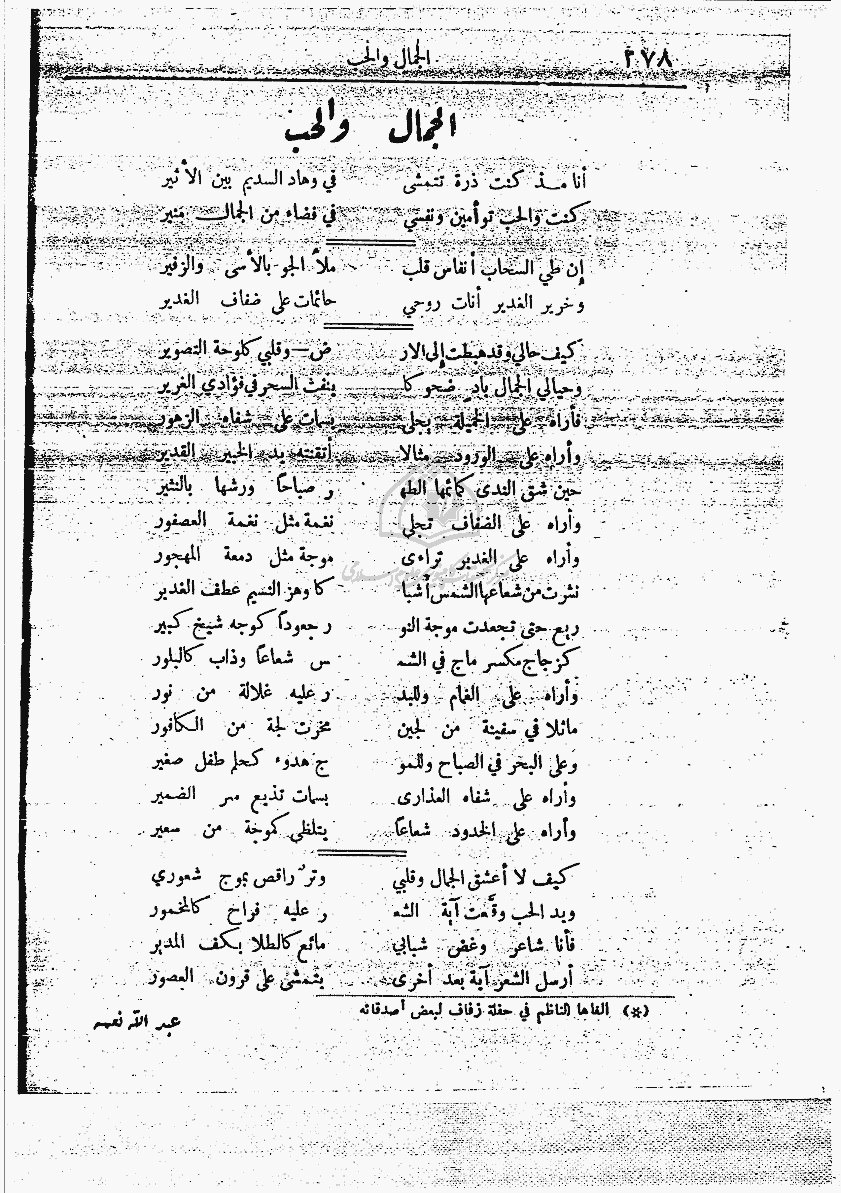 ٢٧٨ الجمال والحب
الجمال والحب
أنا منذ كنت ذرة تتمشى في وهاد السديم بين الأثير
كنت والحب توأمين ونفسي في فضاء من الجمال منير
إن طي السحاب أنفاس قلب ملأ الجو بالأسى والزفير
وخرير الغدير أنات روحي حائمات على ضفاف الغدير
كيف حالي وقد هبطت إلى الار ض — وقلبي كلوحة التصوير
وحيالي الجمال باد ضحوكا ينفث السحر في فؤادي الغرير
فأراه على الخميلة يجلى بسمات على شفاه الزهور
وأراه على الورود مثالا أتقنته يد الخبير القدير
حين شق الندى كمائمها الطه ر صباحاً ورشها بالنثير
وأراه على الضفاف تجلى نغمة مثل نغمة العصفور
وأراه على الغدير تراءى موجة مثل دمعة المهجور
نثرت من شعاعها الشمس أشبا كا وهز النسيم عطف الغدير
ربع حتى تجعدت موجة النو ر جعوداً كوجه شيخ كبير
كزجاج مكسر ماج في الشم س شعاعاً وذاب كالبلور
وأراه على الغمام وللبد ر عليه غلالة من نور
ماثلا في سفينة من لجين مخرت لجة من الكافور
وعلى البحر في الصباح وللمو ج هدوء كحلم طفل صغير
وأراه على شفاه العذارى بسمات تذيع سر الضمير
وأراه على الخدود شعاعاً يتلظى كموجة من سعير
كيف لا أعشق الجمال وقلبي وتر راقص بموج شعوري
ويد الحب وقّعت آية الشع ر عليه فراح كالمخمور
فأنا شاعر وغض شبابي مائع كالطلا بكف المدير
أرسل الشعر آية بعد أخرى يتمشى على قرون العصور
(*) القاها الناظم في حفلة زفاف لبعض أصدقائه
عبد الله نعمه